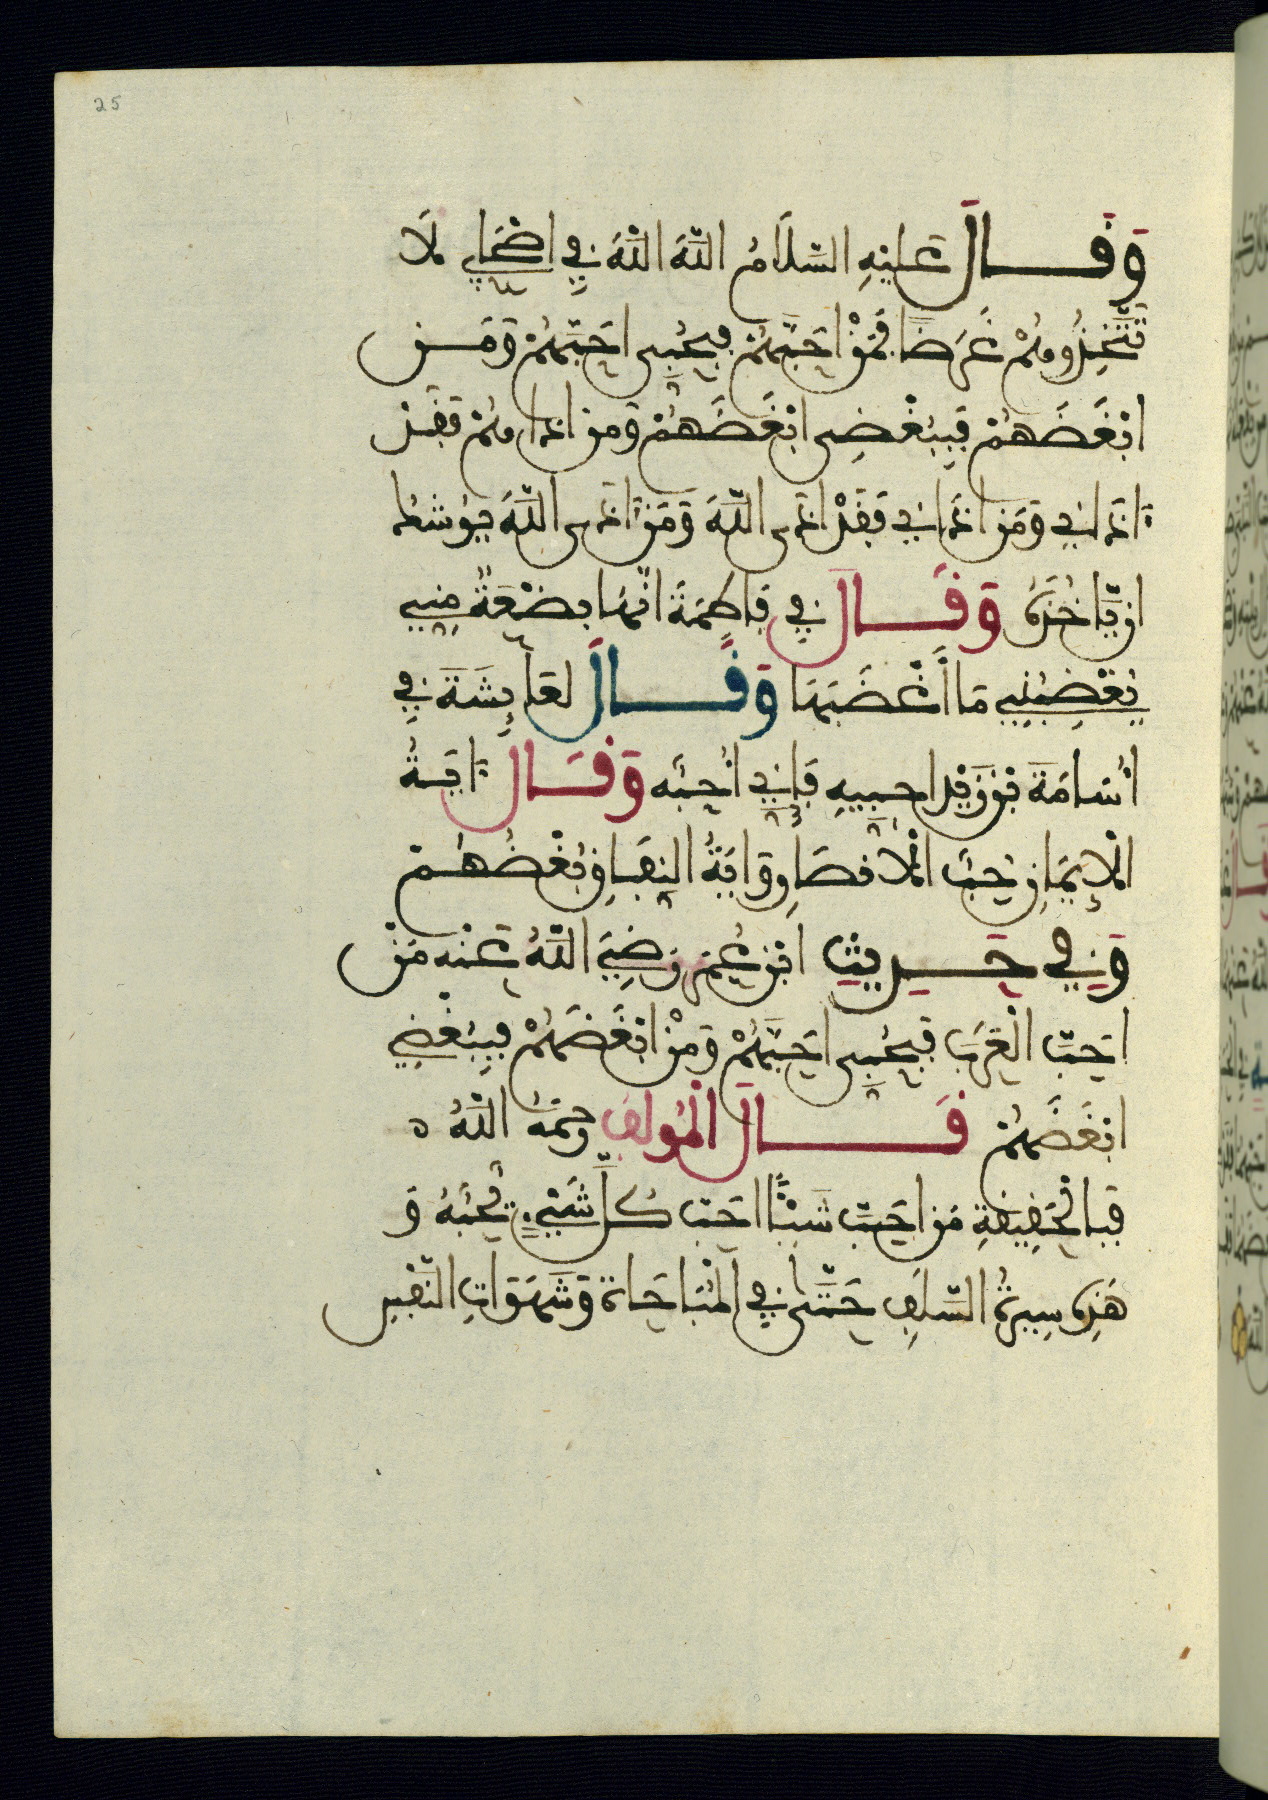 25
وَقَالَ عَلَيْهِ السَّلَامُ اللَّهَ اللَّهَ فِي اصْحَابِي لَا
تَتَّخِذُوهُمْ غَرَضًا فَمَنْ احَبَّهُمْ فَبِحُبِّى احَبَّهُمْ وَمَن
ابْغَضَهُمْ فَبِبُغْضِى ابْغَضَهُمْ وَمَن اذَاهُمْ فَقَدْ
اذَانِي وَمَن اذَانِي فَقَدْ اذَى اللَّهَ وَمَنْ اذَى اللَّهَ يُوشَكُ
ان يَّاخُذَهُ وَقَالَ فِي فَاطِمَةَ انَّهَا بَضْعَةٌ مِنِّي
يُغْضِبُنِي مَا أَغْضَبَهَا وَقَالَ لعَائِشَةَ فِي
اُسَامَةَ بْنِ زَيْدٍ احِبِّيهِ فَإِنِّي اُحِبُّه وَقَالَ ايَةُ
الْإِيمَانِ حُبُّ الْانصَارِ وَايَةُ النِّفَاقِ بُغْضُهُمْ
وَفِي حَدِيثِ ابْنِ عُمَرَ رَضِيَ اللَّهُ عَنْه مَنْ
احَبَّ الْعَرَبَ فَبِحُبِّى احَبَّهُمْ وَمَنْ ابْغَضَهُمْ فَبِبُغْضِي
ابْغَضَهُمْ قَالَ الْمُولف رحِمَهُ اللَّهُ ه
فَبِالْحَقِيقَةِ مَن احَبَّ شَيْئًا احَبَّ كُلَّ شَيْءٍ يُحِبُّهُ وَ
هَذِه سِيرَةُ السَّلَفِ حَتَّى فِي الْمُبَاحَاتِ وَشَهَوَاتِ النَّفْسِ